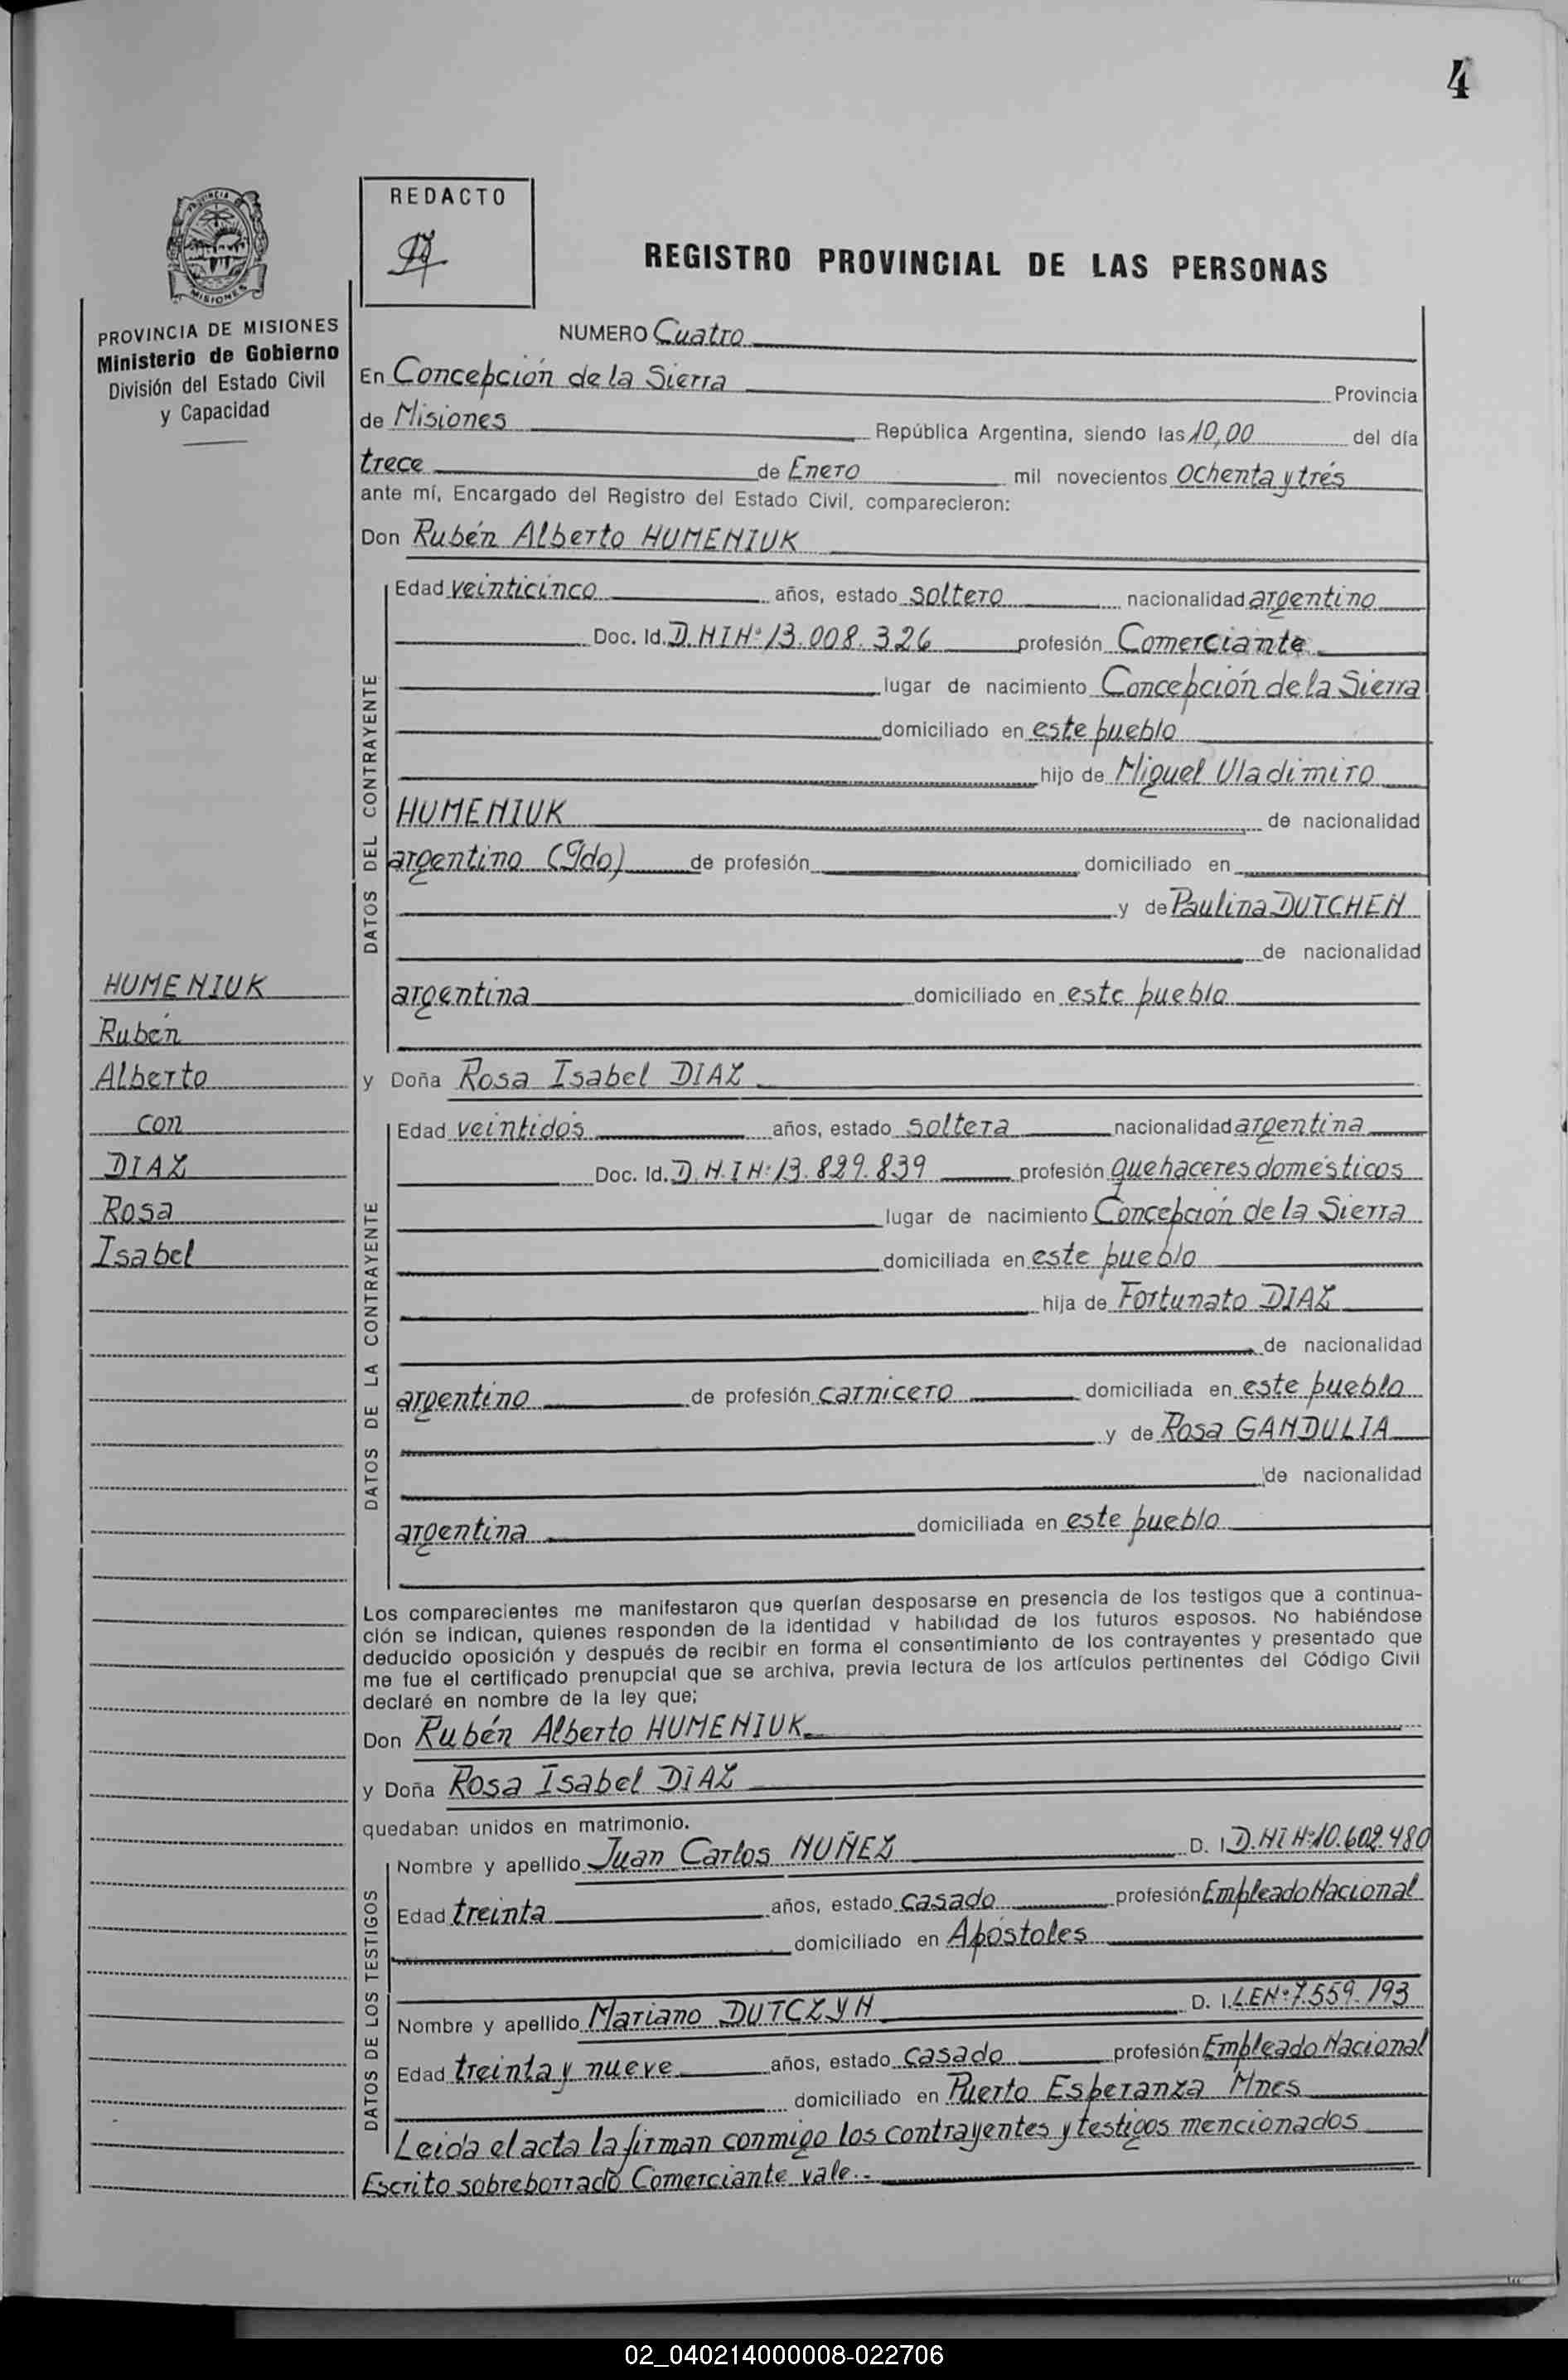 4
PROVINCIA
MISIONES
PROVINCIA DE MISIONES
Ministerio de Gobierno
División del Estado Civil
y Capacidad
REDACTO
REGISTRO PROVINCIAL DE LAS PERSONAS
NUMERO Cuatro
En Concepción de la Sierra Provincia
de Misiones República Argentina, siendo las 10,00 del día
trece de Enero mil novecientos Ochenta y trés
ante mí, Encargado del Registro del Estado Civil, comparecieron:
Don Rubén Alberto HUMENIUK
DATOS DEL CONTRAYENTE
Edad veinticinco años, estado soltero nacionalidad argentino
Doc. Id. D.N.I Nº 13.008.326 profesión Comerciante
lugar de nacimiento Concepción de la Sierra
domiciliado en este pueblo
hijo de Miguel Uladimiro
HUMENIUK de nacionalidad
argentino (Fdo) de profesión domiciliado en
y de Paulina DUTCHEN
de nacionalidad
argentina domiciliado en este pueblo
HUMENIUK
Rubén
Alberto
con
DIAZ
Rosa
Isabel
y Doña Rosa Isabel DIAZ
DATOS DE LA CONTRAYENTE
Edad veintidós años, estado soltera nacionalidad argentina
Doc. Id. D.N.I Nº 13.829.839 profesión quehaceres domésticos
lugar de nacimiento Concepción de la Sierra
domiciliada en este pueblo
hija de Fortunato DIAZ
de nacionalidad
argentino de profesión carnicero domiciliada en este pueblo
y de Rosa GANDULIA
de nacionalidad
argentina domiciliada en este pueblo
Los comparecientes me manifestaron que querían desposarse en presencia de los testigos que a continua-
ción se indican, quienes responden de la identidad y habilidad de los futuros esposos. No habiéndose
deducido oposición y después de recibir en forma el consentimiento de los contrayentes y presentado que
me fue el certificado prenupcial que se archiva, previa lectura de los artículos pertinentes del Código Civil
declaré en nombre de la ley que;
Don Rubén Alberto HUMENIUK
y Doña Rosa Isabel DIAZ
quedaban unidos en matrimonio.
DATOS DE LOS TESTIGOS
Nombre y apellido Juan Carlos NUÑEZ D. I. D.NI Nº 10.602.480
Edad treinta años, estado casado profesión Empleado Nacional
domiciliado en Apóstoles
Nombre y apellido Mariano DUTCZYN D. I. L.E Nº 7.559.193
Edad treinta y nueve años, estado casado profesión Empleado Nacional
domiciliado en Puerto Esperanza Mnes
Leida el acta la firman conmigo los contrayentes y testigos mencionados
Escrito sobreborrado Comerciante vale.-
02_040214000008-022706